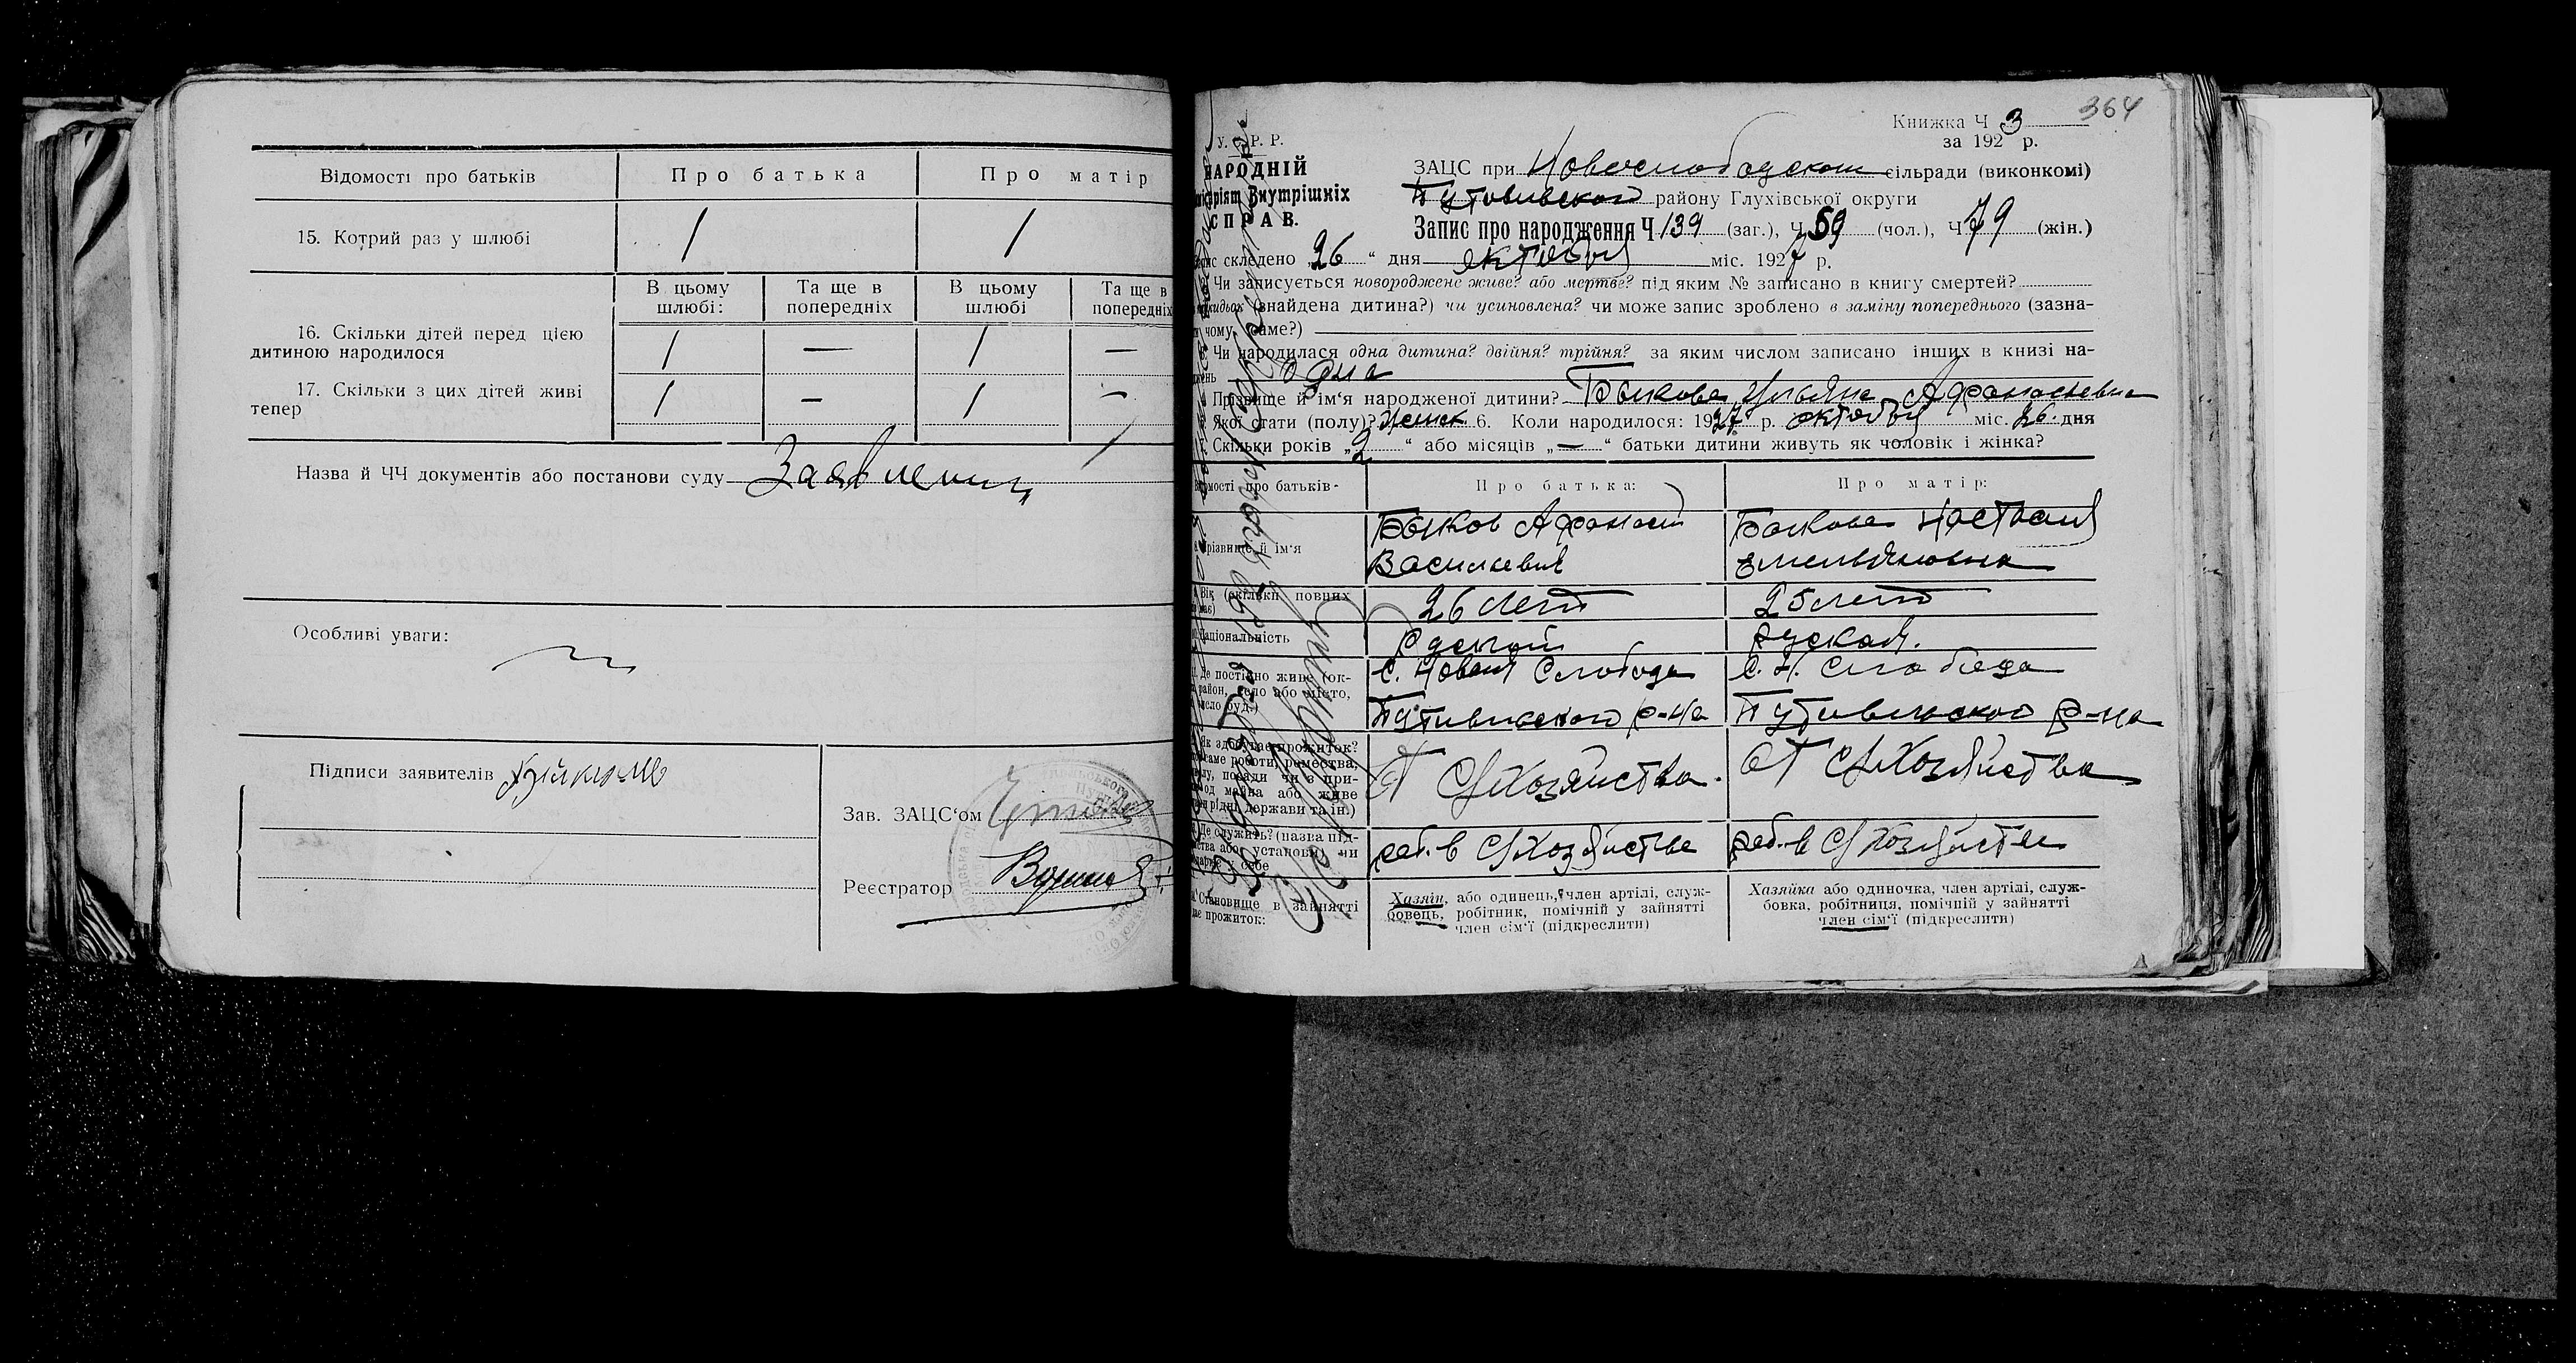 Відомості про батьків
Про батька
Про матір
15. Котрий раз у шлюбі
1
1
В цьому шлюбі:
Та ще в попередніх
В цьому шлюбі
Та ще в попередніх
16. Скільки дітей перед цією
дитиною народилося
1 — 1 —
17. Скільки з цих дітей живі
тепер
1 — 1 —
Назва й ЧЧ документів або постанови суду
Особливі уваги:
Підписи заявителів
Зав. ЗАЦС'ом
Реєстратор
364
Книжка Ч 3
за 192 р.
У. С. Р. Р.
НАРОДНІЙ
Внутрішніх
СПРАВ.
ЗАЦС при Новослободском сільради (виконкомі)
Путивльского району Глухівської округи
Запис про народження Ч 139 (заг.), Ч 59 (чол.), Ч 79 (жін.)
складено 26 " дня октября міс. 1927 р.
Чи записується новороджене живе? або мертве? під яким № записано в книгу смертей?
(знайдена дитина?) чи усиновлена? чи може запис зроблено в заміну попереднього (зазна-
чому саме?)
Чи народилася одна дитина? двійня? трійня? за яким числом записано інших в книзі на-
одна
Прізвище й ім'я народженої дитини? Быкова Ульяна Афанасьевна
Якої стати (полу)? женск 6. Коли народилося: 1927 р. октября міс. 26 дня
Скільки років „2 " або місяців „—" батьки дитини живуть як чоловік і жінка?
про батьків
Про батька:
Про матір:
Прізвище й ім'я
Быков Афанасий
Василевич
Быкова Настасия
Емельяновна
Вік (скільки повних
26 лет
25 лет
Національність
Руской
Руская.
Де постійно живе (ок-
район, село або місто,
число буд.)
С. Новая Слобода
Путивльского р-на
С. Н. Слобода
Путивльского р-на
Як здобуває прожиток?
саме роботи, ремества,
поради чи з при-
майна або живе
держави та ін.)
От С/Хозяйства.
От С/Хозяйства
Де служить? (назва під-
або установи) чи
раб. в С/Хозяйстве
раб. в С/Хозяйстве
Становище в зайнятті
прожиток:
Хазяїн, або одинець, член артілі, служ-
бовець, робітник, помічній у зайнятті
член сім'ї (підкреслити)
Хазяйка або одиночка, член артілі, служ-
бовка, робітниця, помічній у зайнятті
член сім'ї (підкреслити)